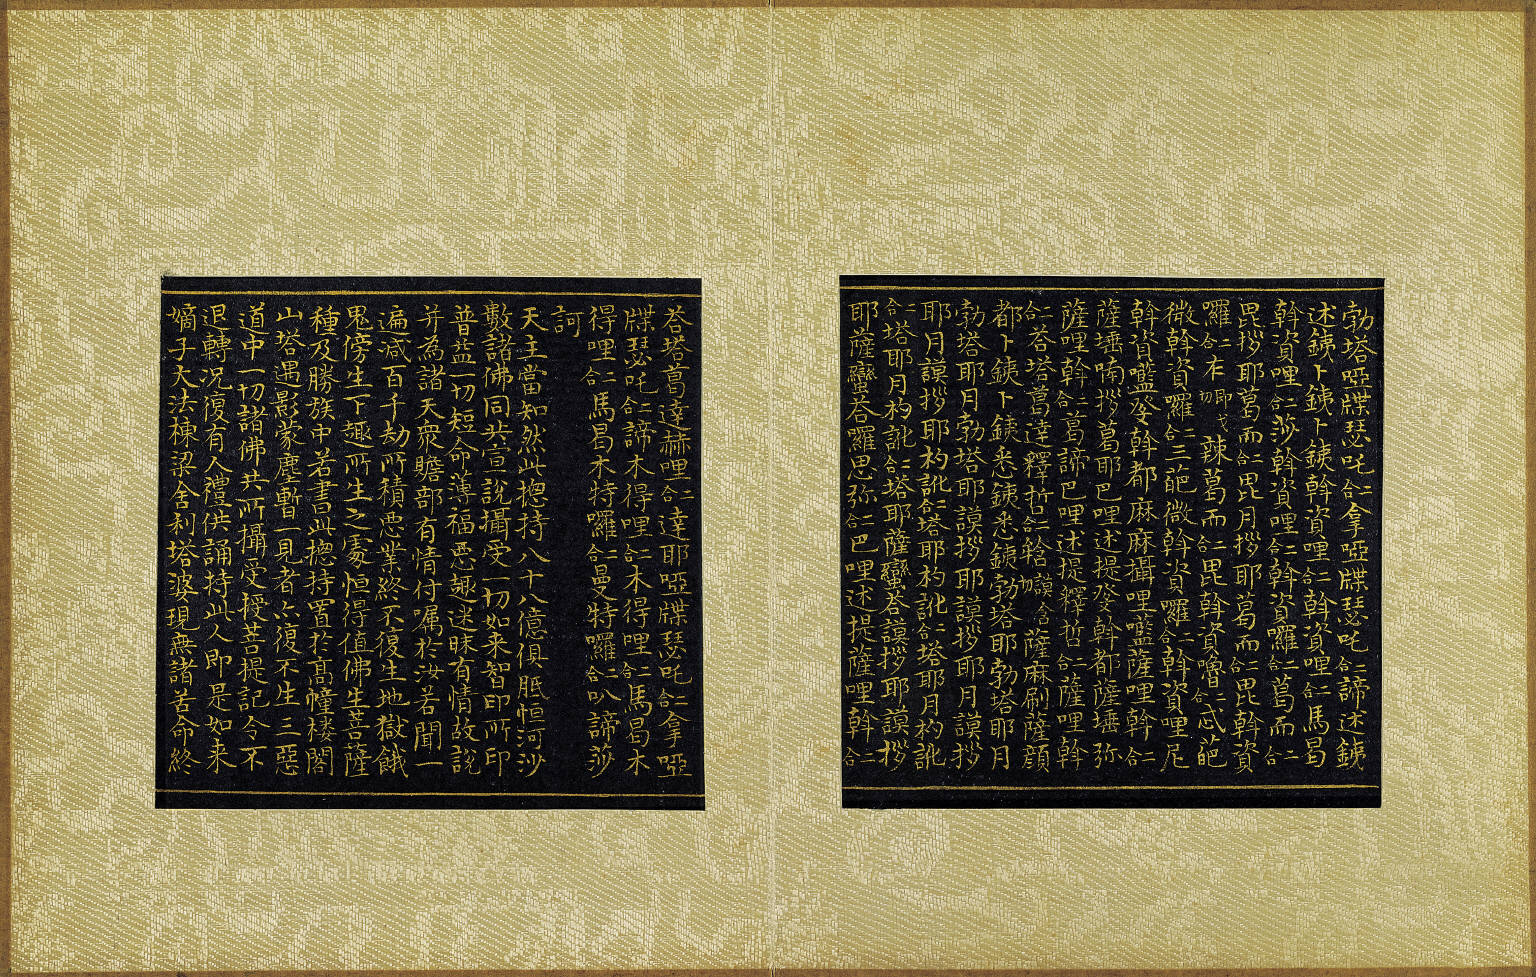 勃塔啞牒瑟吒二合拿啞牒瑟吒二合諦述銕
述銕卜銕卜銕斡資哩二合斡資哩二合馬曷
斡資哩二合莎斡資哩二合斡資囉二合葛而二合
毘拶耶葛而二合毘月拶耶葛而二合毘斡資
囉二合葛而二合毘斡資嚕二合忒葩
微斡資囉二合三葩微斡資囉二合斡資哩尼
斡資㘕癹斡都麻麻攝哩㘕薩哩斡二合
薩埵喃拶葛耶巴哩述提癹斡都薩埵弥
薩哩斡二合葛諦巴哩述提釋哲二合薩哩斡
二合荅塔葛達釋哲二合薩麻刷薩顔
都卜銕卜銕悉銕悉銕勃塔耶勃塔耶月
勃塔耶月勃塔耶謨拶耶謨拶耶月謨拶
耶月謨拶耶杓訛二合塔耶杓訛二合塔耶月杓訛
二合塔耶月杓訛二合塔耶薩蠻荅謨拶耶謨拶
耶薩蠻荅囉思弥二合巴哩述提薩哩斡二合
荅塔葛達赫哩二合達耶啞牒瑟吒二合拿啞
牒瑟吒二合諦木得哩二合木得哩二合馬曷木
得哩二合馬曷木特囉二合曼特囉二合叭諦莎
訶
天主當知然此揔持八十八億俱胝恒河沙
數諸佛同共宣說攝受一切如来智印所印
普益一切短命薄福惡趣迷昧有情故說
并為諸天衆贍部有情付嘱於汝若聞一
遍滅百千劫所積惡業終不復生地獄餓
鬼傍生下趣所生之處恒得值佛生菩薩
種及勝族中若書此揔持置於高幢楼閣
山塔遇影蒙塵暫一見者亦復不生三惡
道中一切諸佛共所攝受授菩提記令不
退轉况復有人禮供誦持此人即是如来
嫡子大法棟梁舍利塔婆現無諸苦命終